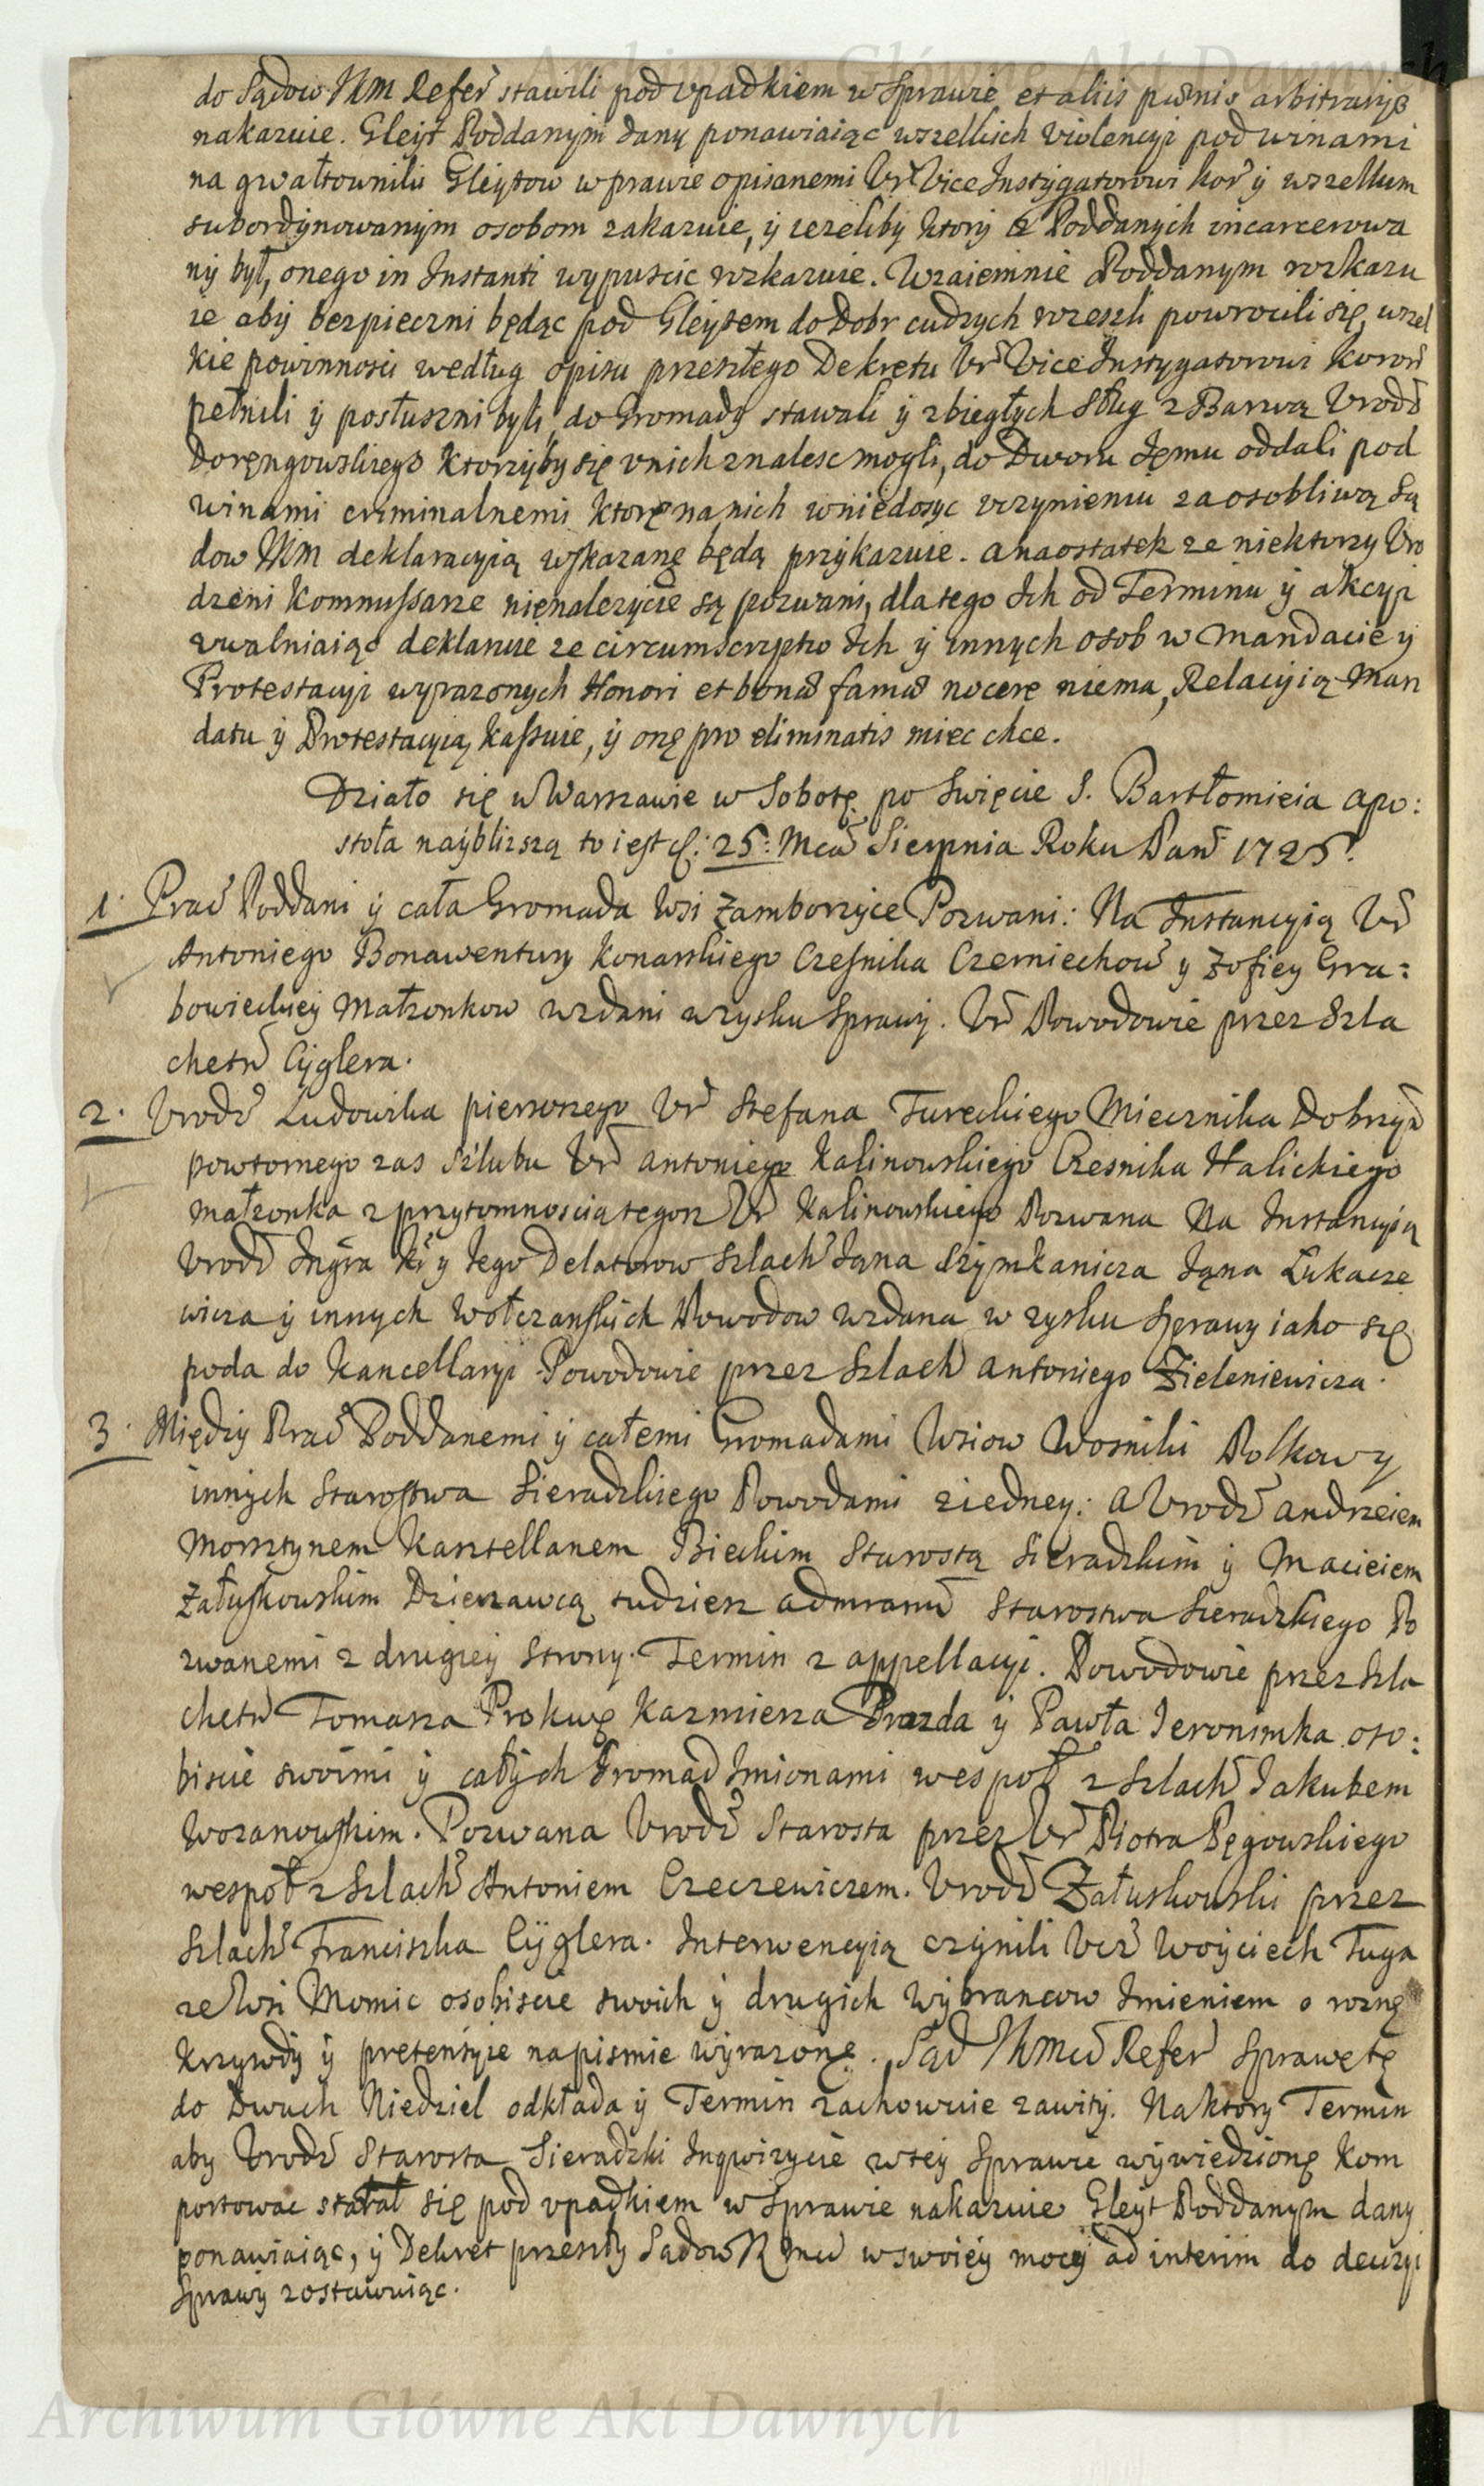 do Sądow JKM Refer stawili pod upadkiem w Sprawie et aliis pœnis arbitrarys
nakazuie. Gleyt Poddanym dany ponawiaiąc wszelkich violencyi pod winami
na gwałtowniki Gleytow w prawie opisanemi Ur Vice Instygatorowi Kor y wszelkim
subordynowanym osobom zakazuie, y iezeliby ktory z Poddanych incarcerowa
ny był, onego in Instanti wypuscic rozkazuie. Wzaiemnie Poddanym rozkazu
ie aby bezpieczni będąc pod Gleytem do Dobr cudzych zeszli powrocili się, wszel
kie powinnosci według opisu przeszłego Dekretu Ur Vice Instygatorowi Koron
pełnili y posłuszni byli, do Gromady stawali y zbiegłych Sług z Barwą Urodz
Doręngowskiego ktorzyby się u nich znalesc mogli, do Dworu Jemu oddali pod
winami criminalnemi, ktore na nich w niedosyc uczynieniu za osobliwą Są
dow JKM deklaracyią wskazane będą przykazuie. a naostatek ze niektorzy Uro
dzeni Kommissarze nienalezycie są pozwani, dla tego Ich od Terminu y akcyi
uwalniaiąc deklaruie ze circumscriptio Ich y innych osob w Mandacie y
Protestacyi wyrazonych Honori et bonæ famæ nocere niema, Relacyią Man
datu y Protestacyią kassuie, y onę pro eliminatis miec chce.
Działo się w Warszawie w Sobotę po Swięcie S. Bartłomieia apo:
stoła naybliszszą to iest d: 25: Mca Sierpnia Roku Pan 1725.
1. Prac Poddani y cała Gromada Wsi Zamborzyce Pozwani: Na Instancyią Ur
Antoniego Bonawentury Konarskiego Czesnika Czerniechow y Zofiey Gra:
bowieckiey Małzonkow wzdani w zysku Sprawy. Ur Powodowie przez Szla
chetn Cyglera.
2. Urodz Ludowika pierwszego Ur Stefana Tureckiego Miecznika Dobrzyn
powtornego zas Szlubu Ur Antoniego Kalinowskiego Czesnika Halickiego
małzonka z przytomnoscią tegoz Ur Kalinowskiego Pozwana Na Instancyią
Urodz Ingra Kr y Jego Delatorow Szlach Jana Szymkanicza Jana Łukasze
wicza y innych Wołczanskich Powodow wzdana w zysku Sprawy iako się
poda do Kancellaryi Powodowie przez Szlach Antoniego Zieleniewicza.
3. Między Prac Poddanemi y całemi Gromadami Wsiow Wosniki Polkow y
innych Starostwa Sieradzkiego Powodami ziedney: A Urodz Andrzeiem
Morsztynem Kasztellanem Bieckim Starostą Sieradzkim y Macieiem
Załuskowskim Dzierzawcą tudziesz admranu Starostwa Sieradzkiego Po
zwanemi z drugiey Strony. Termin z appellacyi. Powodowie przez Szla
chetn Tomasza Prokwę Kazmierza Brozda y Pawła Jeronimka oso:
biscie swoimi y całych Gromad Imionami wespoł z Szlach Jakubem
Wozanowskim. Pozwana Urodz Starosta przez Ur Piotra Pęgowskiego
wespoł z Szlach Antoniem Czeczewiczem. Urodz Załuskowski przez
Szlach Franciszka Cyglera. Interwencyią czynili Ucz Woyciech Tuga
ze Wsi Momic osobiscie swoich y drugich Wybrancow Imieniem o roznę
krzywdy y pretensyie napismie wyrazonę. Sąd JKMci Refer Sprawę tę
do Dwuch Niedziel odkłada y Termin zachowuie zawity. Naktory Termin
aby Urodz Starosta Sieradzki Inqwizycie w tey Sprawie wywiedzionę kom
portowac starał się pod upadkiem w Sprawie nakazuie Gleyt Poddanym dany
ponawiaiąc, y Dekret przeszły Sądow JKMci w swoiey mocy ad interim do decizyi
Sprawy zostawuiąc.